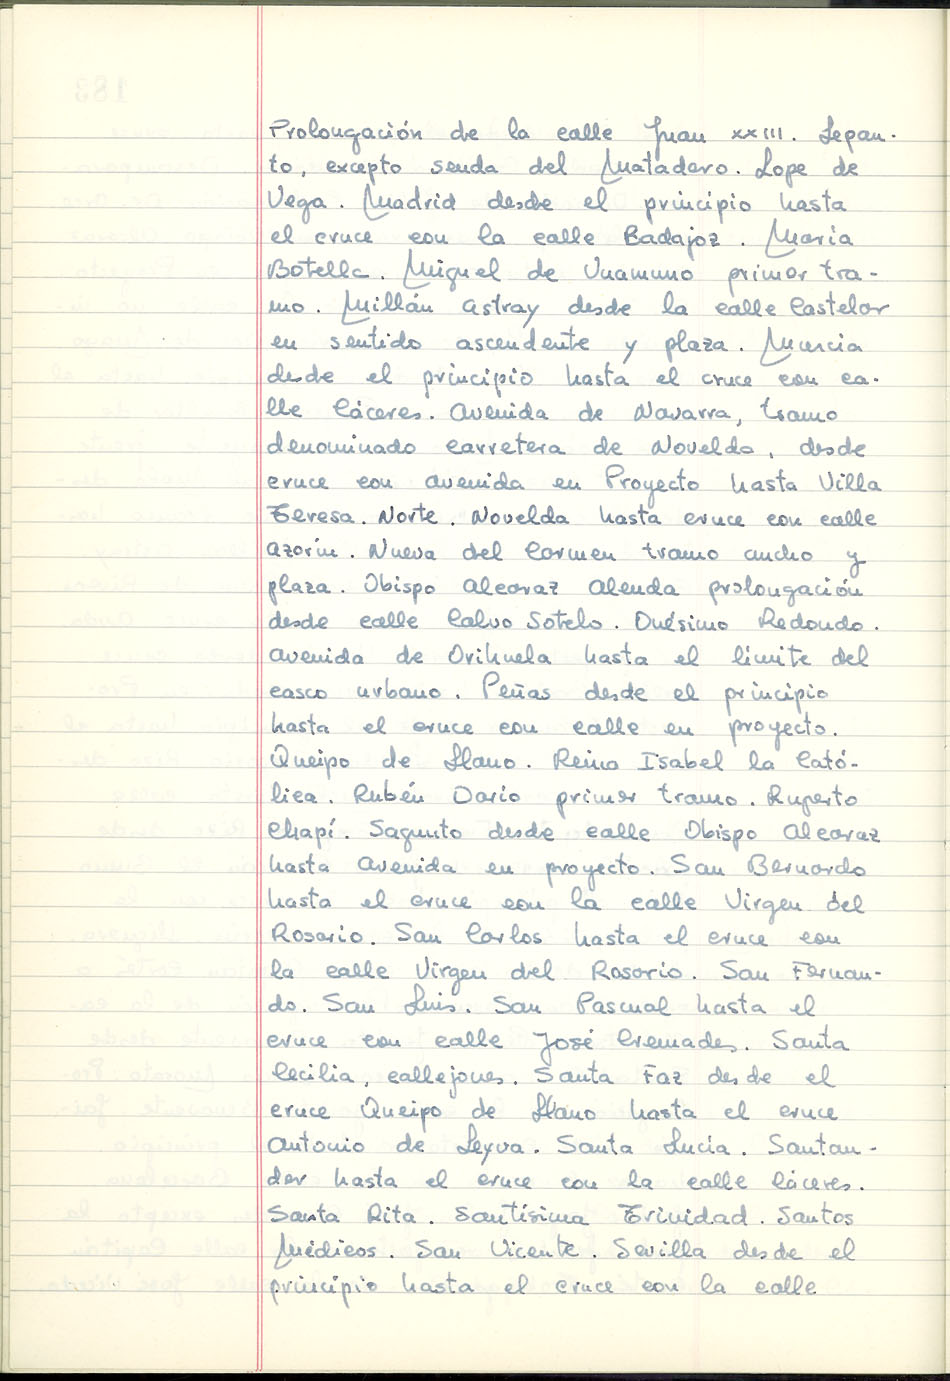 Prolongación de la calle Juan XXIII. Lepan-
to, excepto senda del Matadero. Lope de
Vega. Madrid desde el principio hasta
el cruce con la calle Badajoz. María
Botella. Miguel de Unamuno primer tra-
mo. Millán Astray desde la calle Castelar
en sentido ascendente y plaza. Murcia
desde el principio hasta el cruce con ca-
lle Cáceres. Avenida de Navarra, tramo
denominado carretera de Novelda, desde
cruce con avenida en Proyecto hasta Villa
Teresa. Norte. Novelda hasta cruce con calle
Azorín. Nueva del Carmen tramo ancho y
plaza. Obispo Alcaraz Alenda prolongación
desde calle Calvo Sotelo. Onésimo Redondo.
Avenida de Orihuela hasta el límite del
casco urbano. Peñas desde el principio
hasta el cruce con calle en proyecto.
Queipo de Llano. Reina Isabel la Cató-
lica. Rubén Darío primer tramo. Ruperto
Chapí. Sagunto desde calle Obispo Alcaraz
hasta avenida en proyecto. San Bernardo
hasta el cruce con la calle Virgen del
Rosario. San Carlos hasta el cruce con
la calle Virgen del Rosario. San Fernan-
do. San Luis. San Pascual hasta el
cruce con calle José Cremades. Santa
Cecilia, callejones. Santa Faz desde el
cruce Queipo de Llano hasta el cruce
Antonio de Leyva. Santa Lucía. Santan-
der hasta el cruce con la calle Cáceres.
Santa Rita. Santísima Trinidad. Santos
Médicos. San Vicente. Sevilla desde el
principio hasta el cruce con la calle